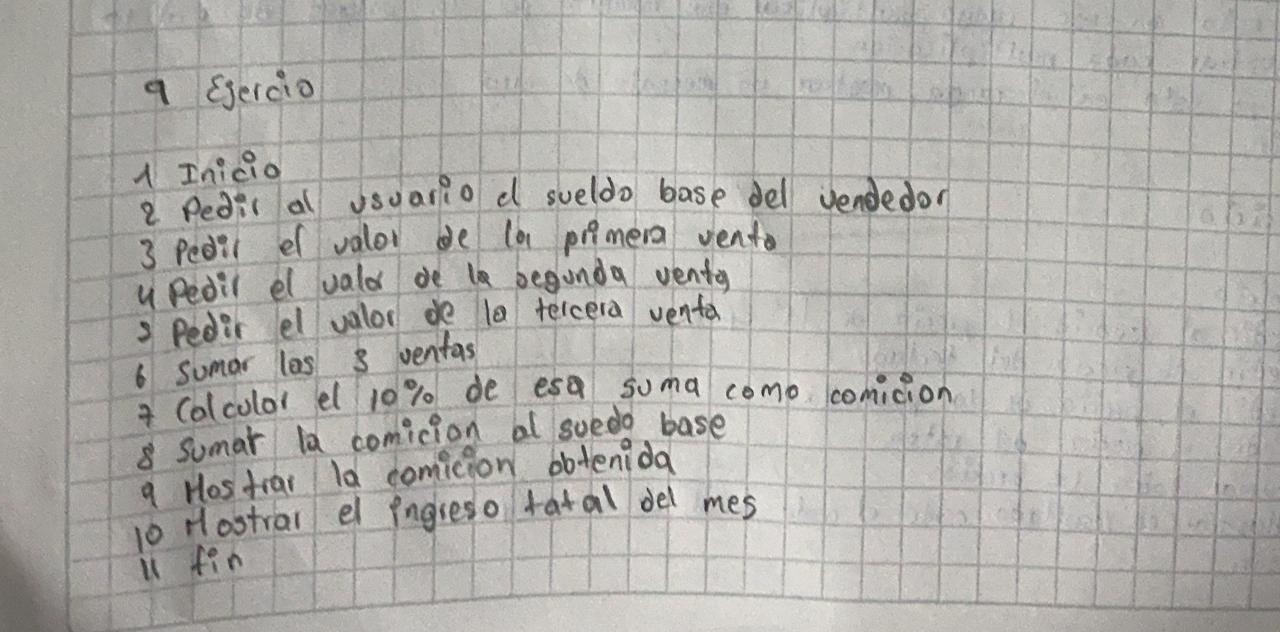 9 Ejercio
1 Inicio
2 Pedir al usuario el sueldo base del vendedor
3 Pedir el valor de la primera venta
4 Pedir el valor de la segunda venta
5 Pedir el valor de la tercera venta
6 sumar las 3 ventas
7 Calcular el 10% de esa suma como comicion
8 Sumar la comicion al suedo base
9 Mostrar la comicion obtenida
10 Mostrar el ingreso tatal del mes
11 fin